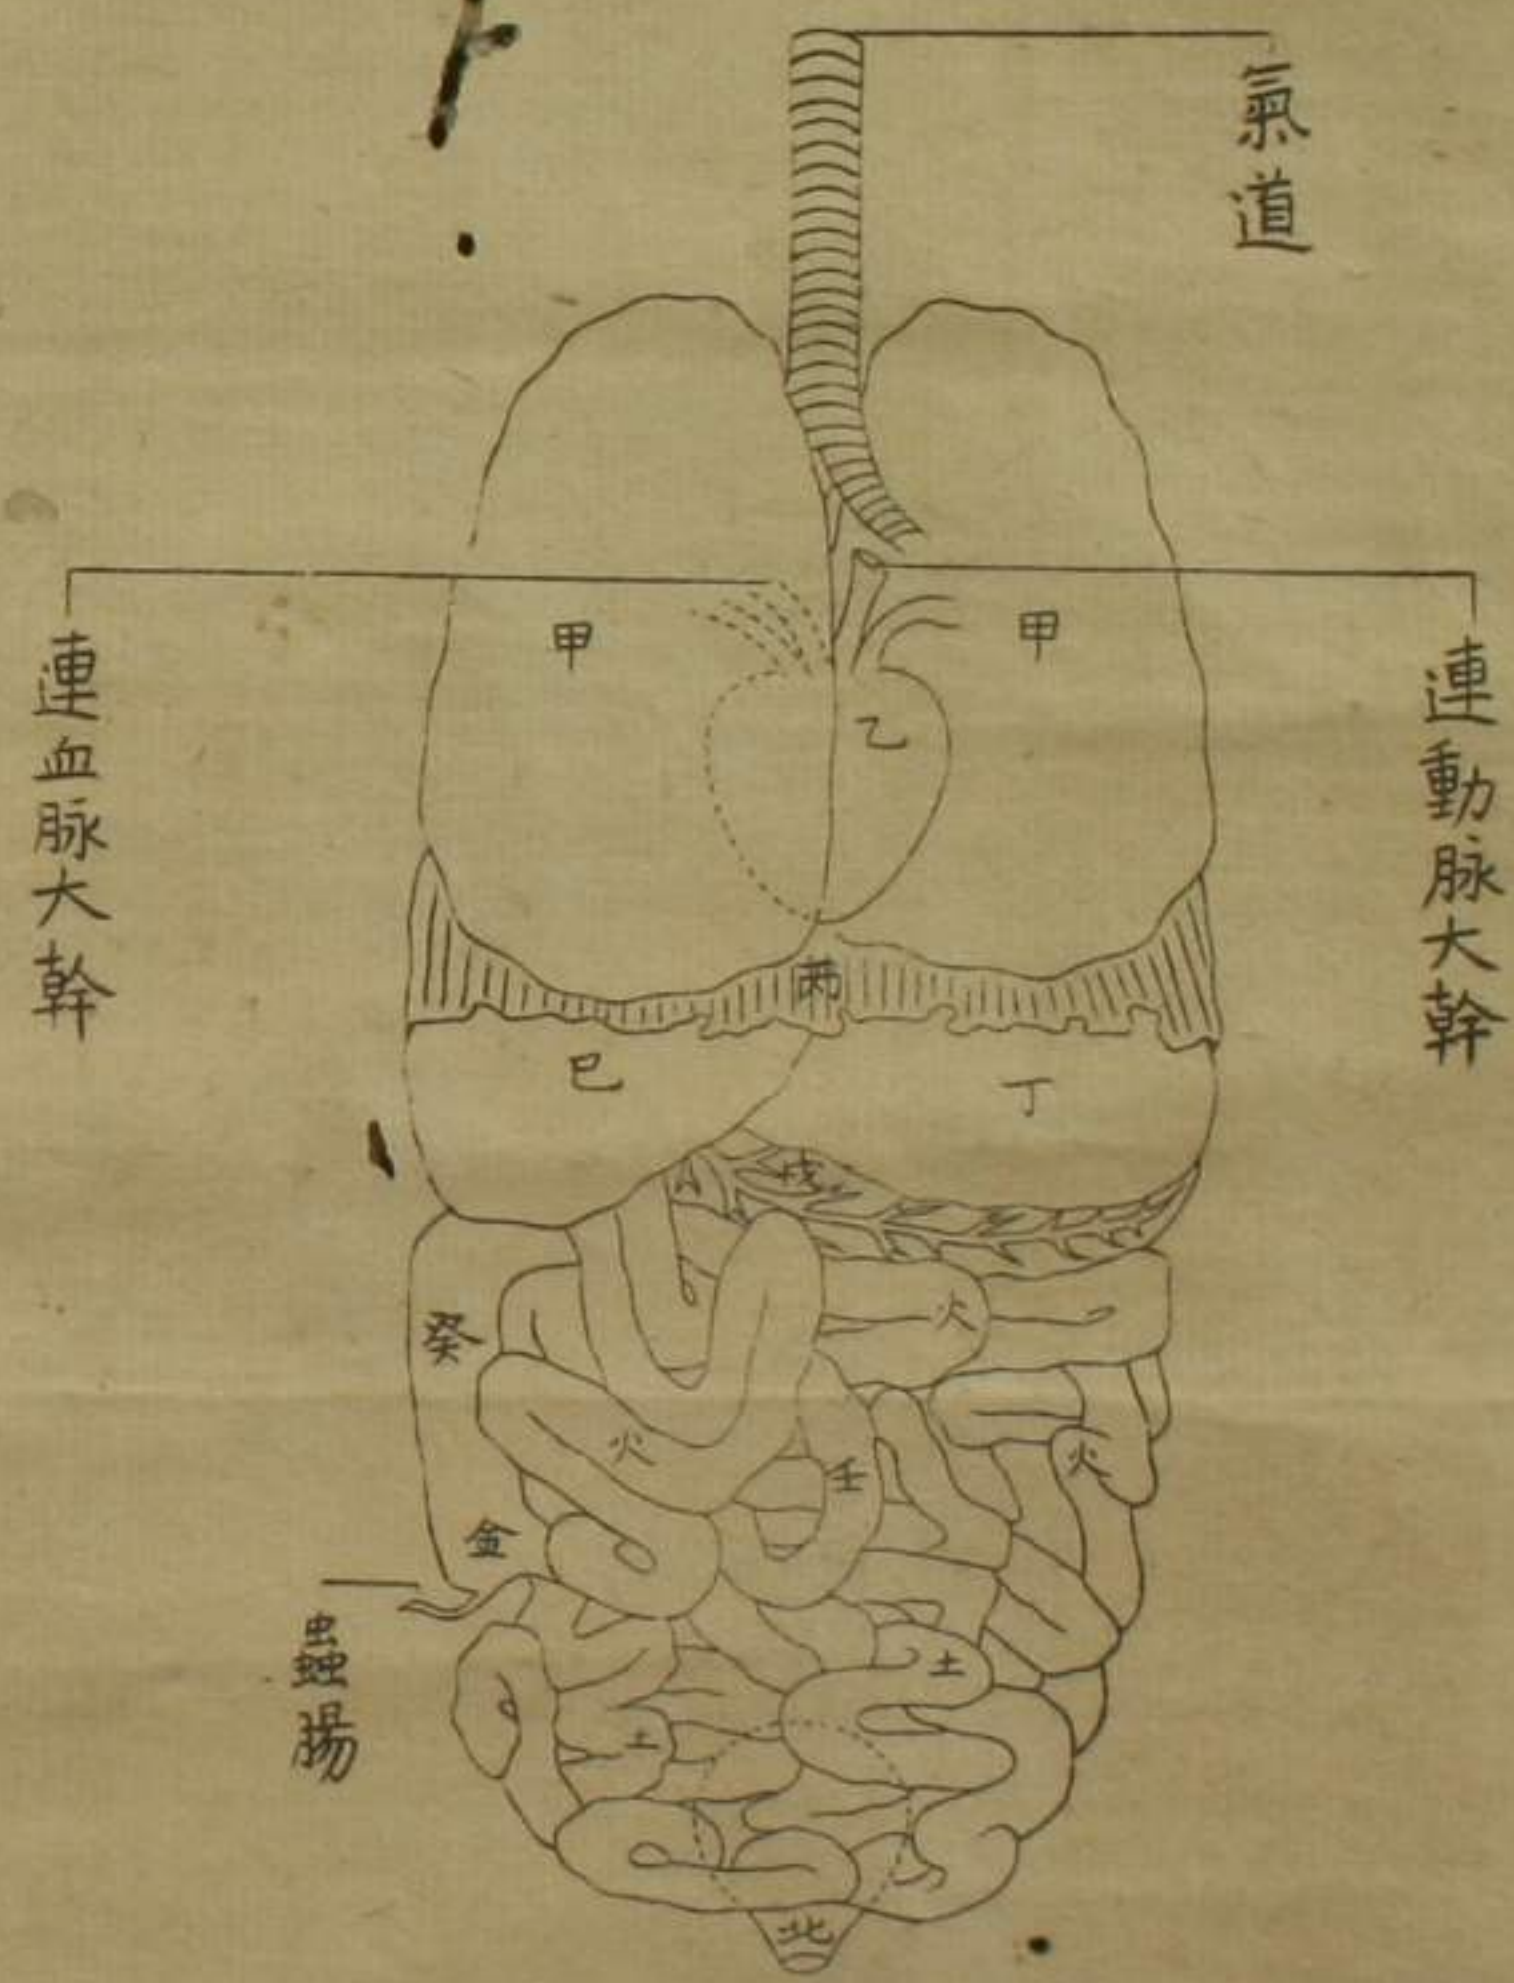 氣道
連動脉大幹
連血脉大幹
甲
甲
乙
丙
丁
巳
戊
癸
火
火
火
壬
金
蟲腸
土
土
北